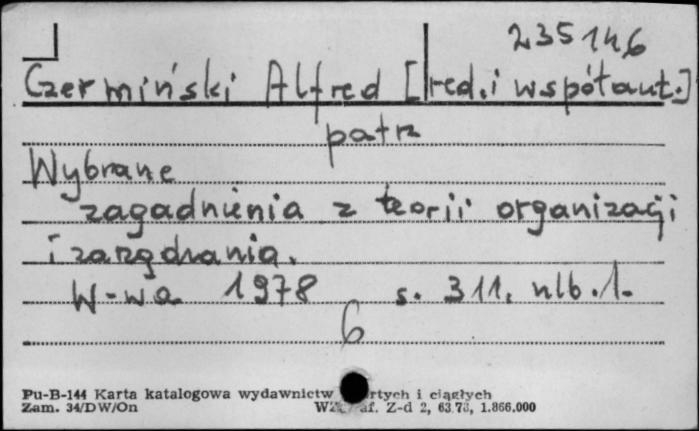 235146
Czermiński Alfred [red. i współaut.]
patrz
Wybrane
zagadnienia z teorii organizacji
i zarządzania.
W-wa 1978 s. 311, nlb. 1.
6
Pu-B-144 Karta katalogowa wydawnictw i ciągłych
Zam. 34/DW/On Z-d 2, 63.73, 1.866.000